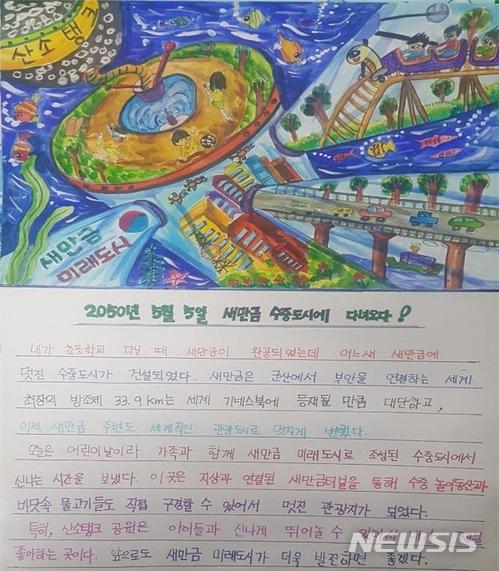 산소탱크
새만금
미래도시
2050년 5월 5일 새만금 수중도시에 다녀오다!
내가 초등학교 다닐 때 새만금이 완공되었는데 어느새 새만금에
멋진 수중도시가 건설되었다. 새만금은 군산에서 부안을 연결하는 세계
최장의 방조제 33.9km는 세계 기네스북에 등재될 만큼 대단하고,
이제 새만금 주변도 세계적인 관광도시로 멋지게 변했다.
오늘은 어린이날이라 가족과 함께 새만금 미래도시로 조성된 수중도시에서
신나는 시간을 보냈다. 이곳은 지상과 연결된 새만금터널을 통해 수중 놀이동산과
바닷속 물고기들도 직접 구경할 수 있어서 멋진 관광지가 되었다.
특히, 산소탱크 공원은 아이들과 신나게 뛰어놀 수
좋아하는 곳이다. 앞으로도 새만금 미래도시가 더욱 발전하면 좋겠다.
NEWSIS